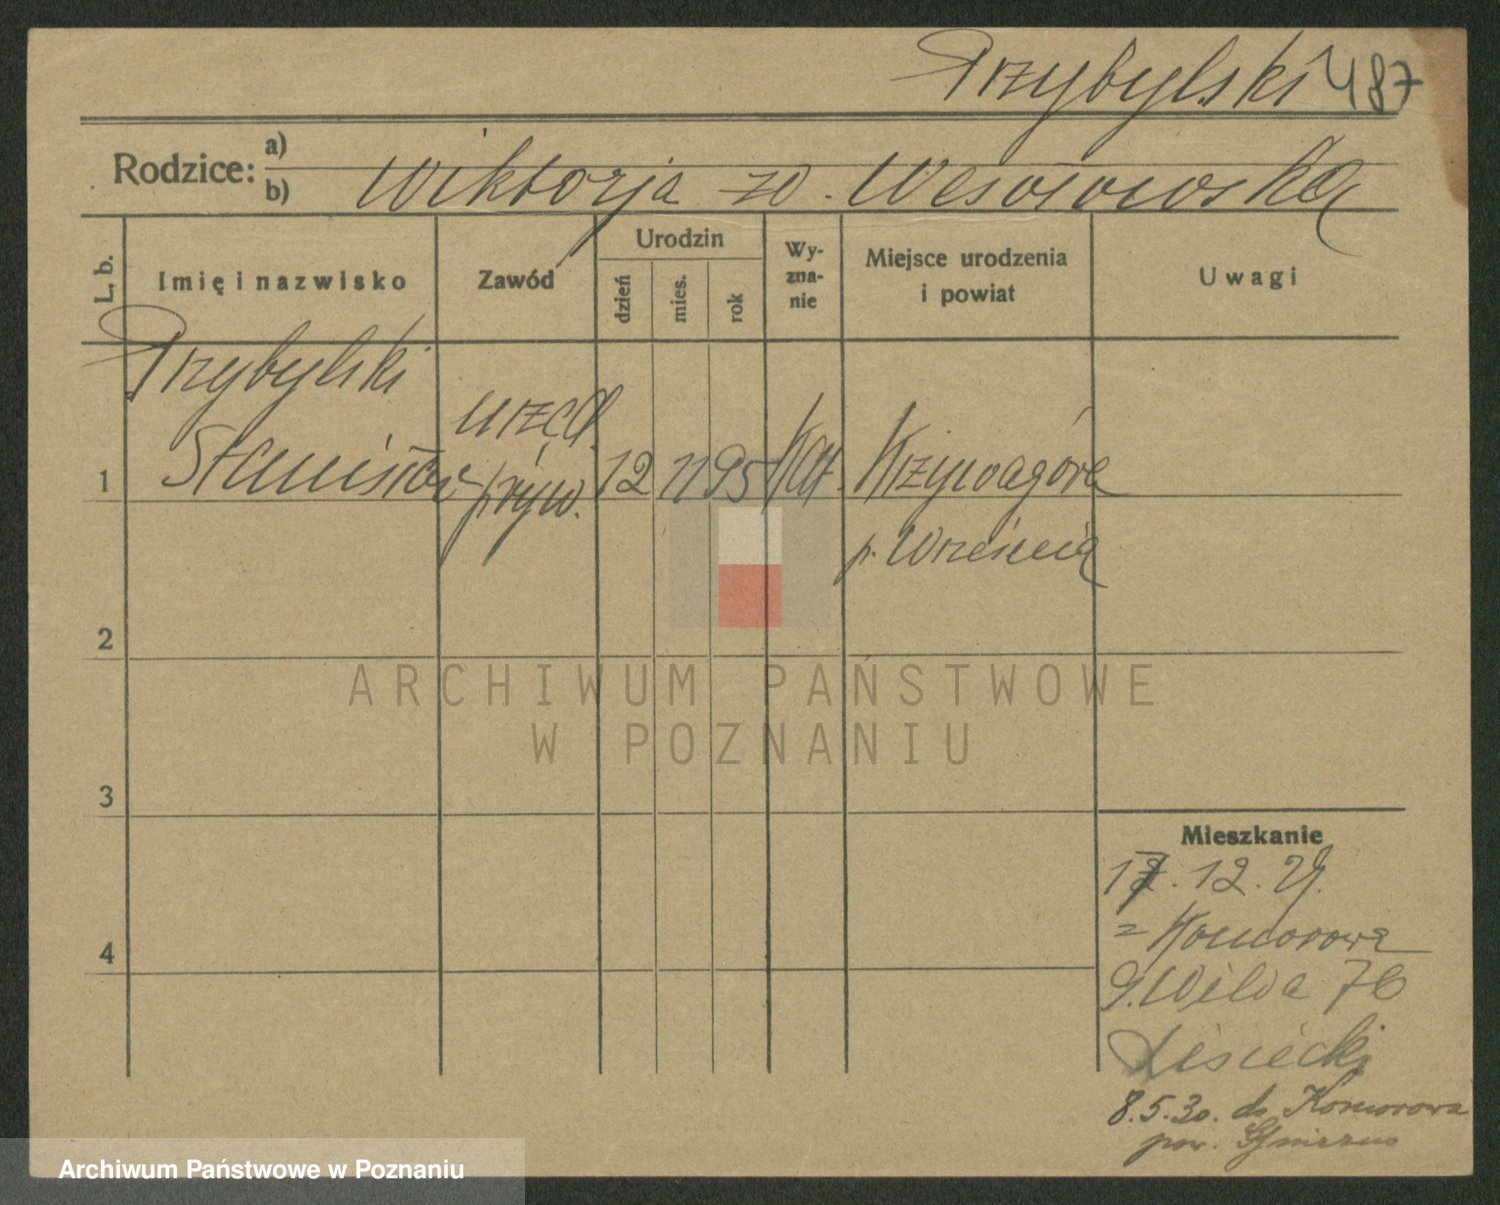 Przybylski 487
Rodzice: a)
b) Wiktorja zd. Wesołowska
L. b.
Imię i nazwisko
Zawód
Urodzin
dzień
mies.
rok
Wy-
zna-
nie
Miejsce urodzenia
i powiat
Uwagi
Przybylski
Stanisław
urzęd.
pryw.
12 11 95 Kat. Krzywagóra
p. Września
1
2
3
4
Mieszkanie
12. 29.
z Komorowa
G. Wilda 76
Lisiecki
8.5.30. do Komorowa
pow. Gniezno
ARCHIWUM PAŃSTWOWE
W POZNANIU
Archiwum Państwowe w Poznaniu